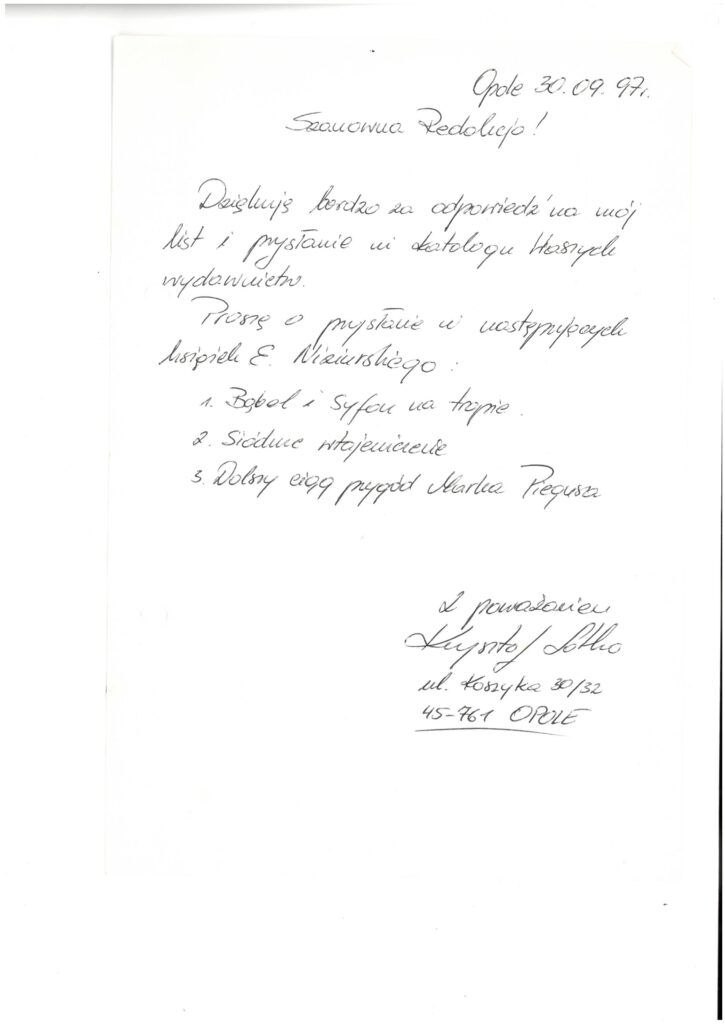 Opole 30.09.97r.
Szanowna Redakcjo!
Dziękuję bardzo za odpowiedź na mój
list i przysłanie mi katalogu Waszych
wydawnictw.
Proszę o przysłanie mi następujących
książek E. Niziurskiego:
1. Bąbel i Syfon na tropie.
2. Siódme wtajemniczenie
3. Dalszy ciąg przygód Marka Piegusa
Z poważaniem
Krzysztof
ul. Koszyka 30/32
45-761 OPOLE